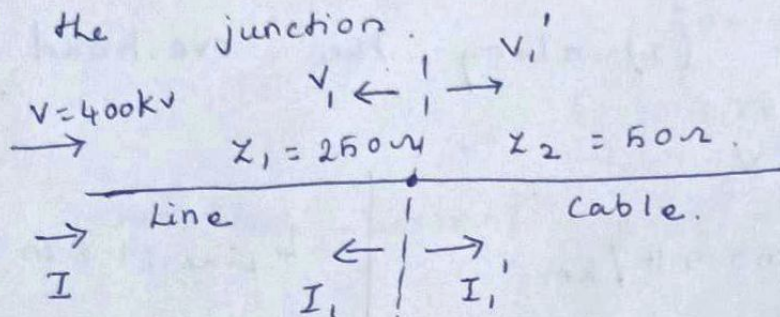 the junction.
V₁ V₁'
V=400kV
Z₁ = 250Ω Z₂ = 50Ω.
Line Cable.
I I₁ I₁'